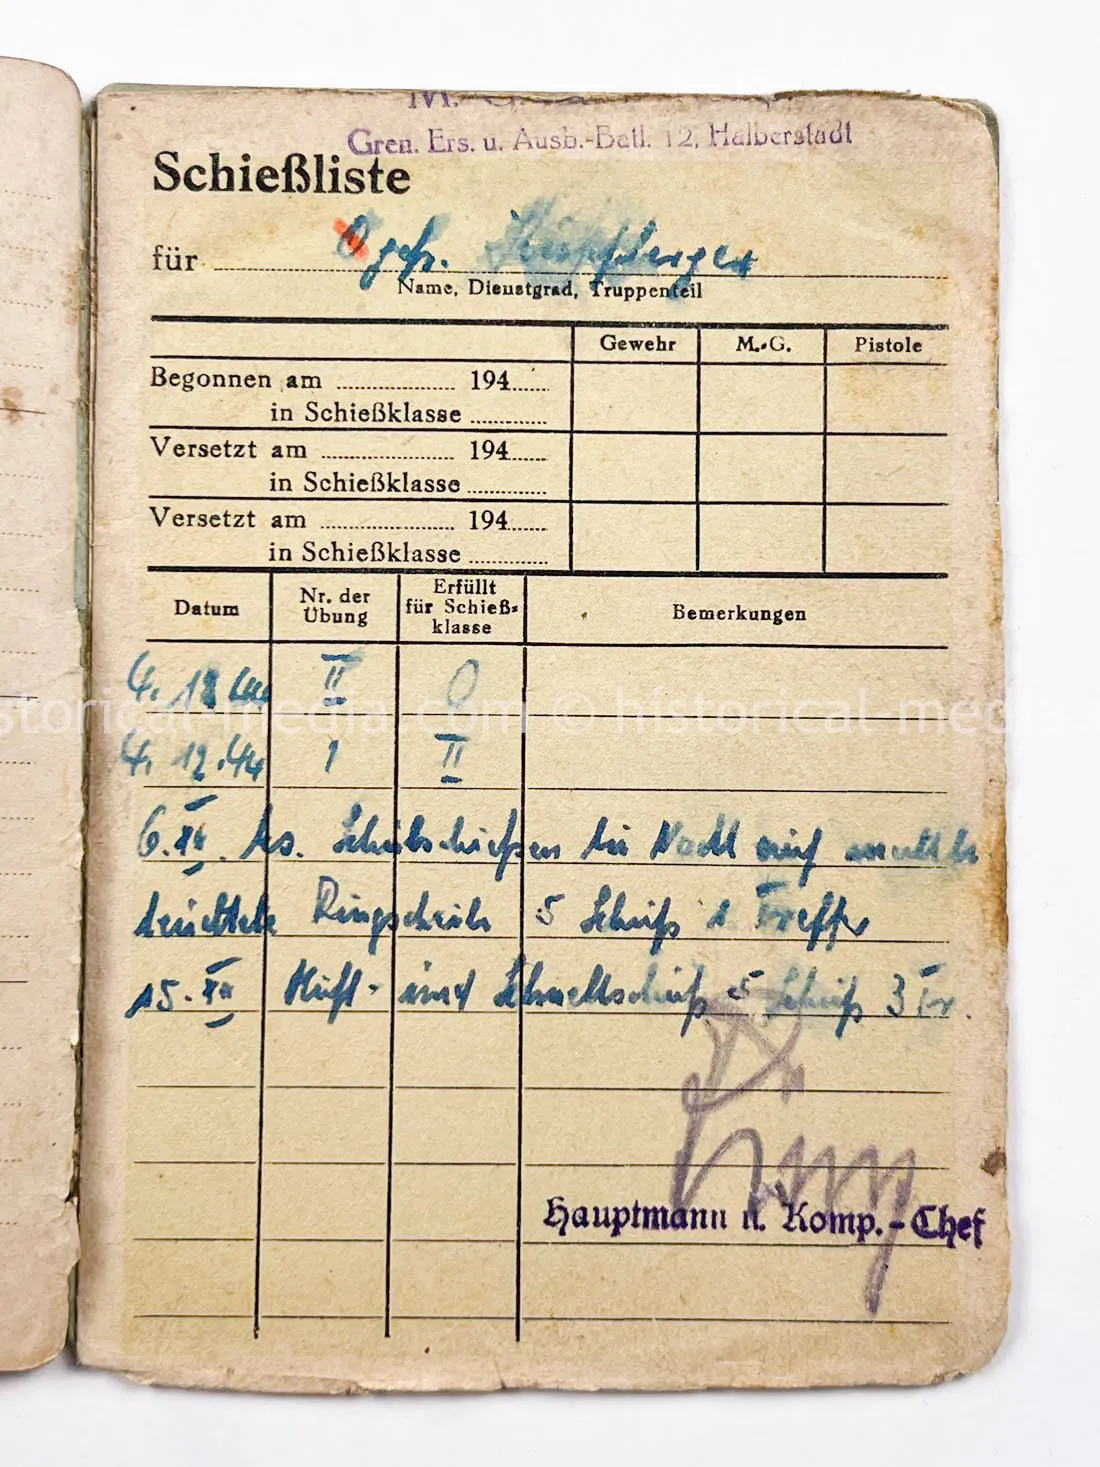 Gren. Ers. u. Ausb.-Batl. 12, Halberstadt
Schießliste
für Ogefr.
Name, Dienstgrad, Truppenteil
Gewehr M.-G. Pistole
Begonnen am 194
in Schießklasse
Versetzt am 194
in Schießklasse
Versetzt am 194
in Schießklasse
Datum Nr. der Übung Erfüllt für Schieß-klasse Bemerkungen
4. 12 44 II 0
4. 12.44 1 II
6. XII. Schulschießen bei Nacht auf
leuchtete Ringscheibe 5 Schuß 1 Treffer
15. XII Hüft- und Schnellschuß 5 Schuß 3 Tr.
Hauptmann u. Komp.-Chef
historical-media.com © historical-media